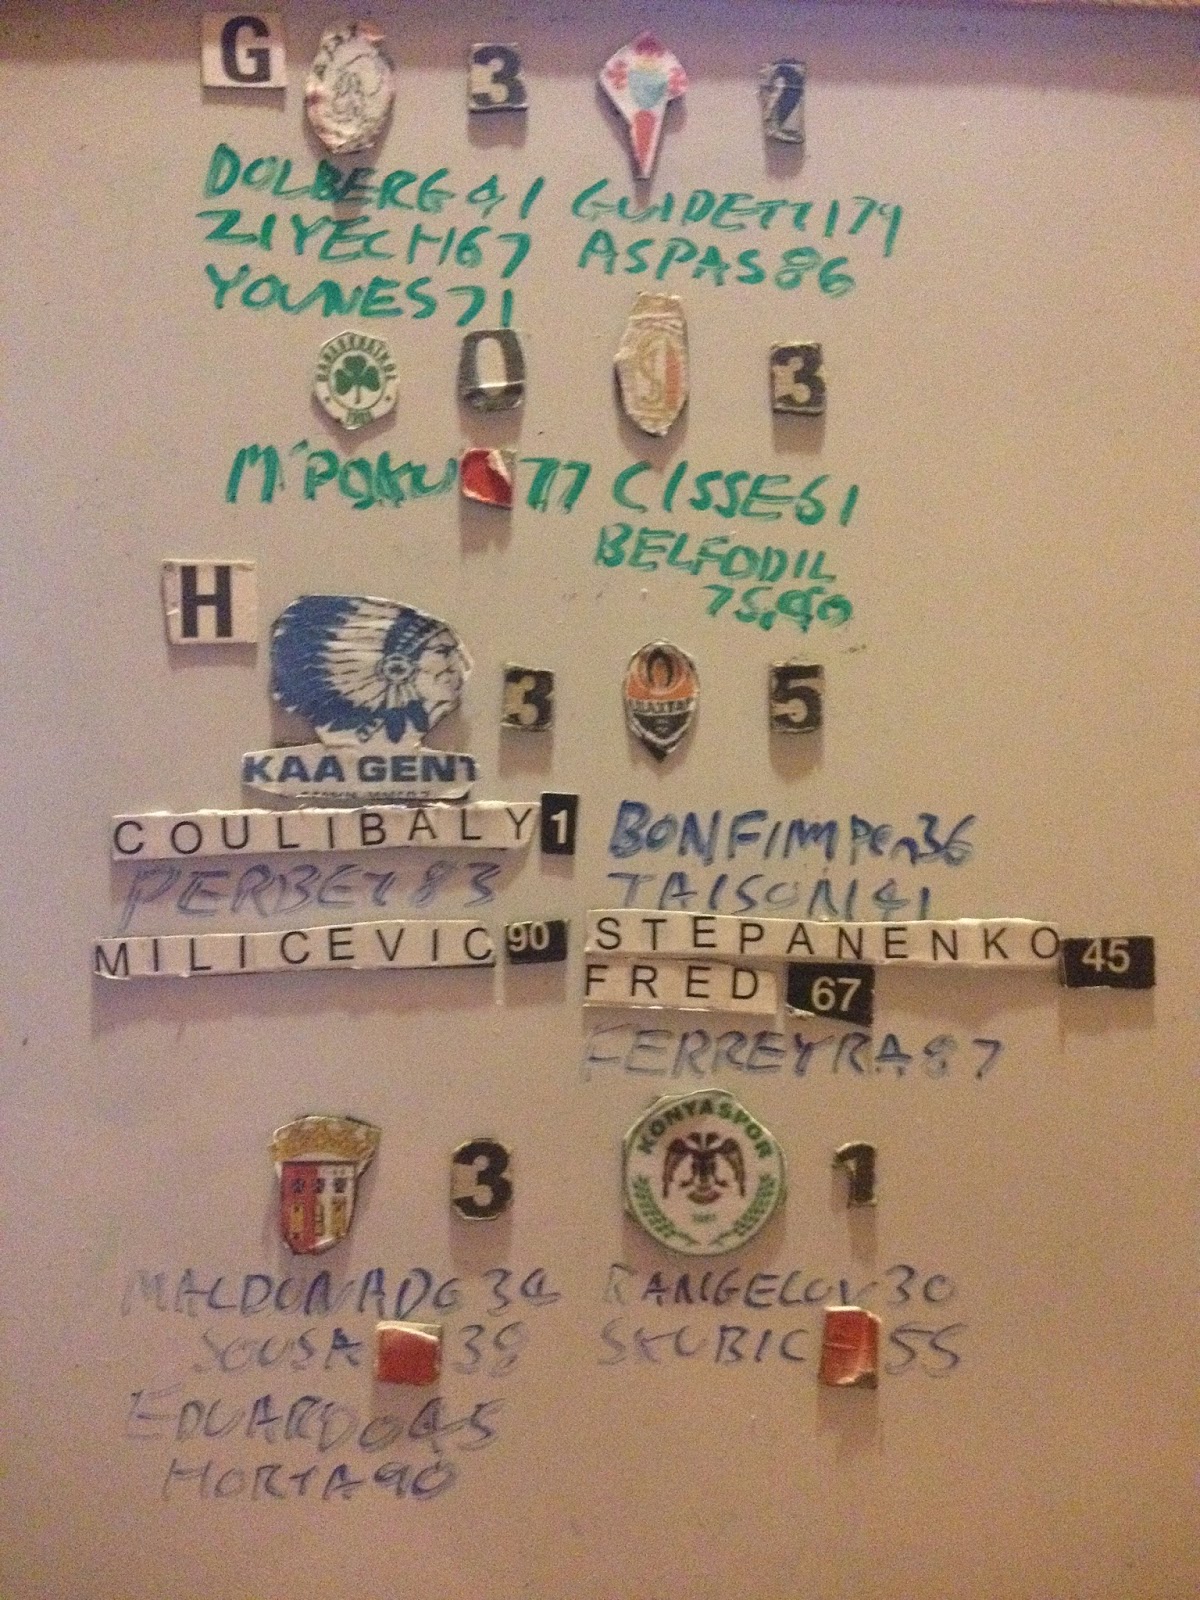 G 3 2
DOLBERG 41 GUIDETTI 79
ZIYECH 67 ASPAS 86
YOUNES 71
0 3
M'POKU 77 CISSE 61
BELFODIL
75,90
H
3 5
KAA GENT
COULIBALY 1 BONFIM Pen 36
PERBET 83 TAISON 41
MILICEVIC 90 STEPANENKO 45
FRED 67
FERREYRA 87
KONYASPOR
3 1
MALDONADO 34 RANGELOV 30
SOUSA 38 SKUBIC 55
EDUARDO 45
HORTA 90